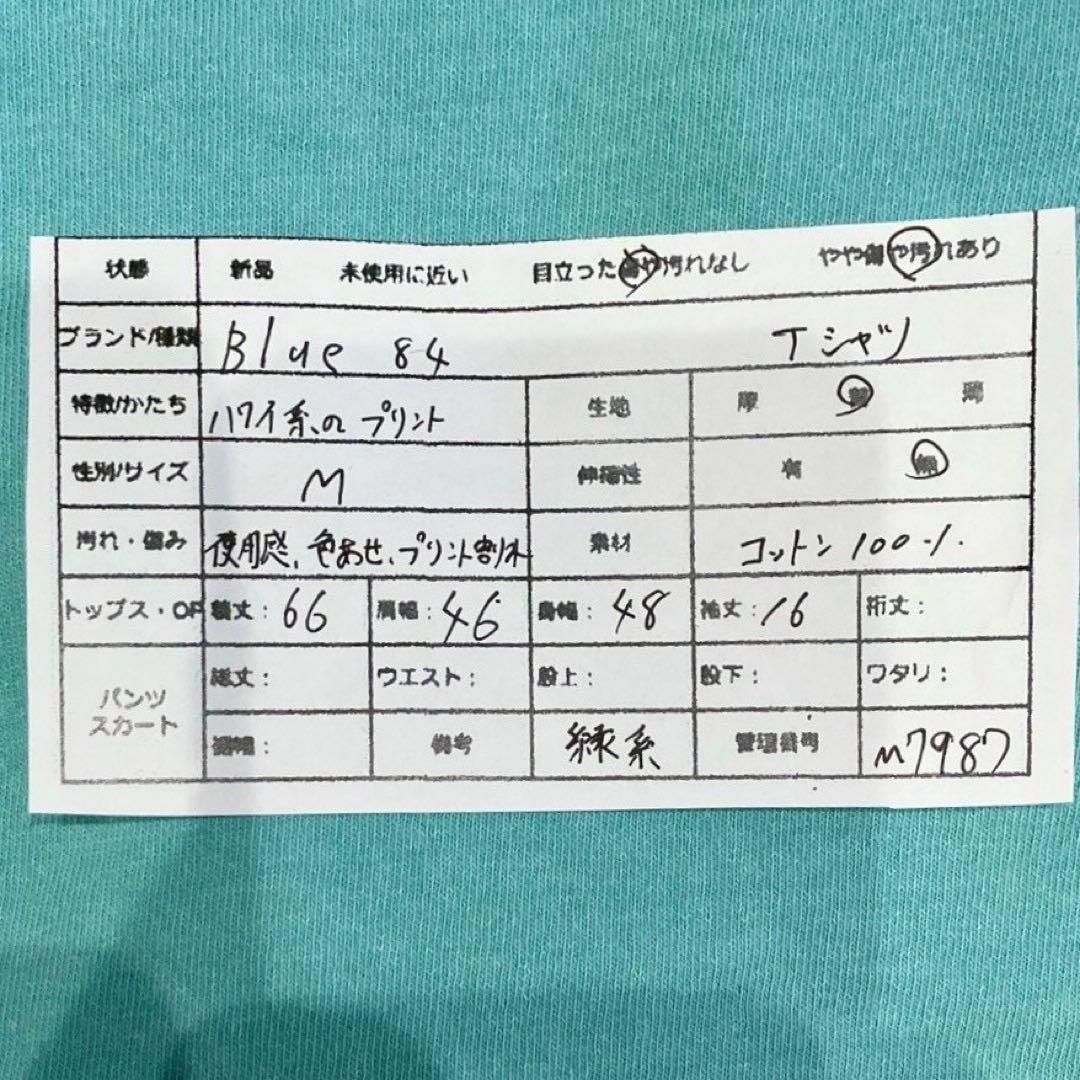 状態 新品 未使用に近い 目立った傷や汚れなし やや傷や汚れあり
ブランド/種類 Blue 84 Tシャツ
特徴/かたち ハワイ系のプリント 生地 厚 普 薄
性別/サイズ M 伸縮性 有 無
汚れ・傷み 使用感、色あせ、プリント割れ 素材 コットン100%
トップス・OP 着丈:66 肩幅:46 身幅:48 袖丈:16 裄丈:
パンツ スカート 総丈: ウエスト: 股上: 股下: ワタリ:
裾幅: 備考 緑系 管理番号 M7987